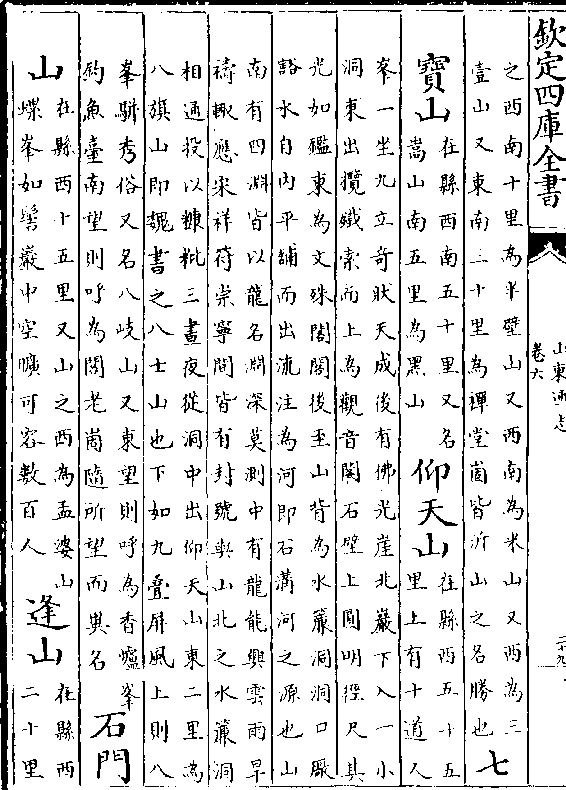 欽定四庫全書
山東通志
卷六
二十九
之西南十里為半壁山又西南為米山又西為三
壹山又東南二十里為禪堂崮皆沂山之名勝也
七
寶山
在縣西南五十里又名
嵩山南五里為黑山
仰天山
在縣西五十五
里上有十道人
峯一坐九立奇狀天成後有佛光崖北巖下入一小
洞東出攬鐵索而上為觀音閣石壁上圓明徑尺其
光如鑑東為文殊閣閣後至山背為水簾洞洞口厰
谿水自內平鋪而出流注為河即石溝河之源也山
南有四淵皆以龍名淵深莫測中有龍能興雲雨旱
禱輒應宋祥符崇寧間皆有封號與山北之水簾洞
相通投以糠粃三晝夜從洞中出仰天山東二里為
八旗山即魏書之八士山也下如九疊屏風上則八
峯騈秀俗又名八岐山又東望則呼為香爐峯
釣魚臺南望則呼為閻老崮隨所望而異名
石門
山
在縣西十五里又山之西為孟婆山
蝶峯如髻巖中空曠可容數百人
逢山
在縣西
二十里